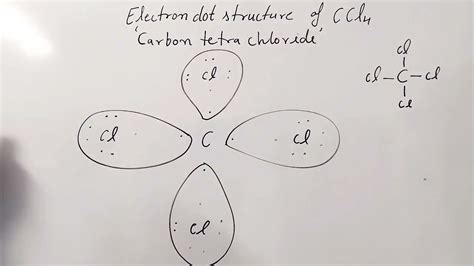 Electron dot structure of CCl4
'Carbon tetra chloride'
Cl
Cl
Cl - C - Cl
Cl
Cl
C
Cl
Cl